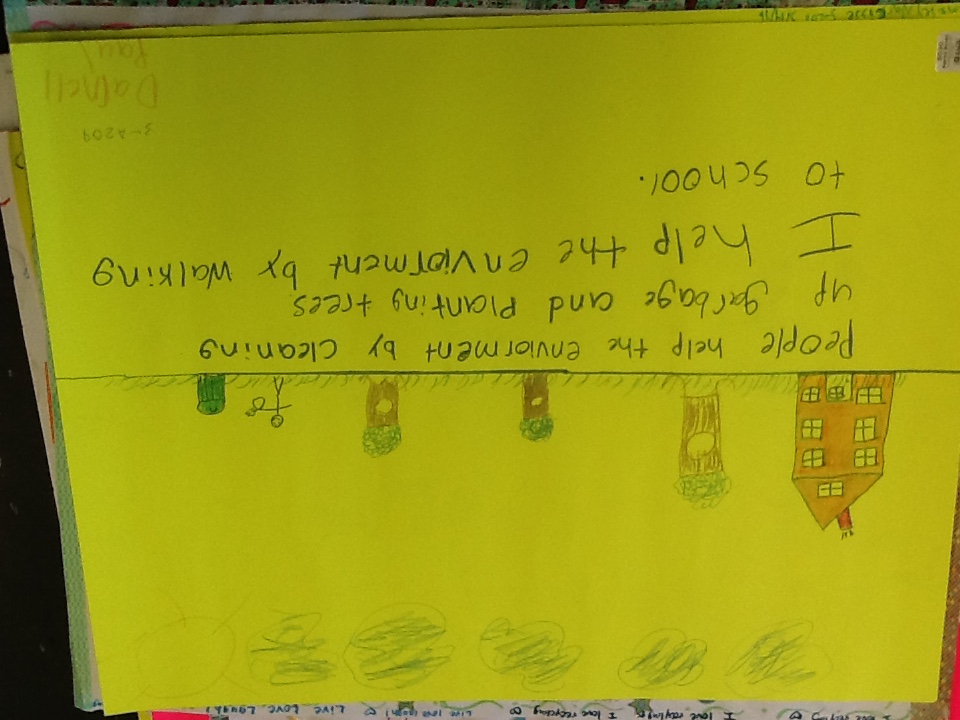 I love recycling I love recycling Live love laugh! Live Love Laugh!
People help the enviorment by cleaning
up garbage and Planting trees
I help the enviorment by walking
to school.
3-A209
Darnell
Paul